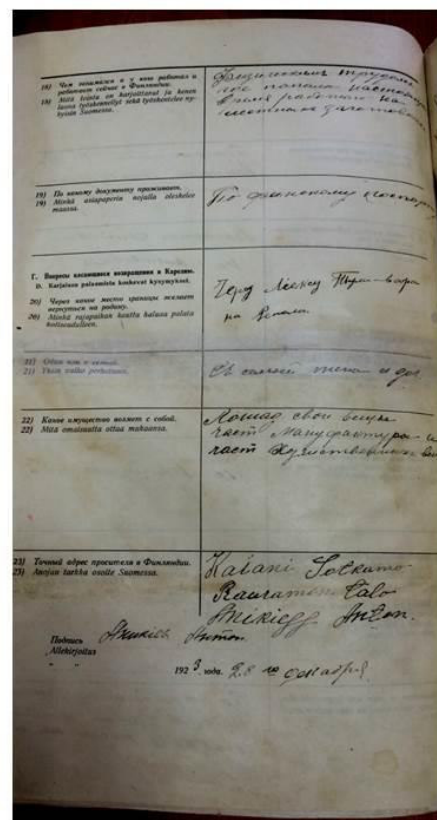 18) Чем занимался и у кого работал и
работает сейчас в Финляндии.
18) Mitä toimia on harjoittanut ja kenen
luona työskennellyt sekä työskentelee ny-
kyisin Suomessa.
Физическим трудом
настоящее
время работаю на
19) По какому документу проживает.
19) Minkä asiapaperin nojalla oleskelee
maassa.
По финскому паспорту
Г. Вопросы касающиеся возвращения в Карелию.
D. Karjalaan palaamista koskevat kysymykset.
20) Через какое место границы желает
вернуться на родину.
20) Minkä rajapaikan kautta haluaa palata
kotiseudulleen.
Через
на Реболы
21) Один или с семьей.
21) Yksin vaiko perheineen.
Съ семьей жена и
22) Какое имущество возмет с собой.
22) Mitä omaisuutta ottaa mukaansa.
Лошад свои вещи
част Мануфактура и
част
23) Точный адрес просителя в Финляндии.
23) Anojan tarkka osoite Suomessa.
Kajani Sotkamo
Rauramon Talo
Anikieff Anton.
Подпись Аникиев Антон
Allekirjoitus
" "
1923 года. 28 го декабря